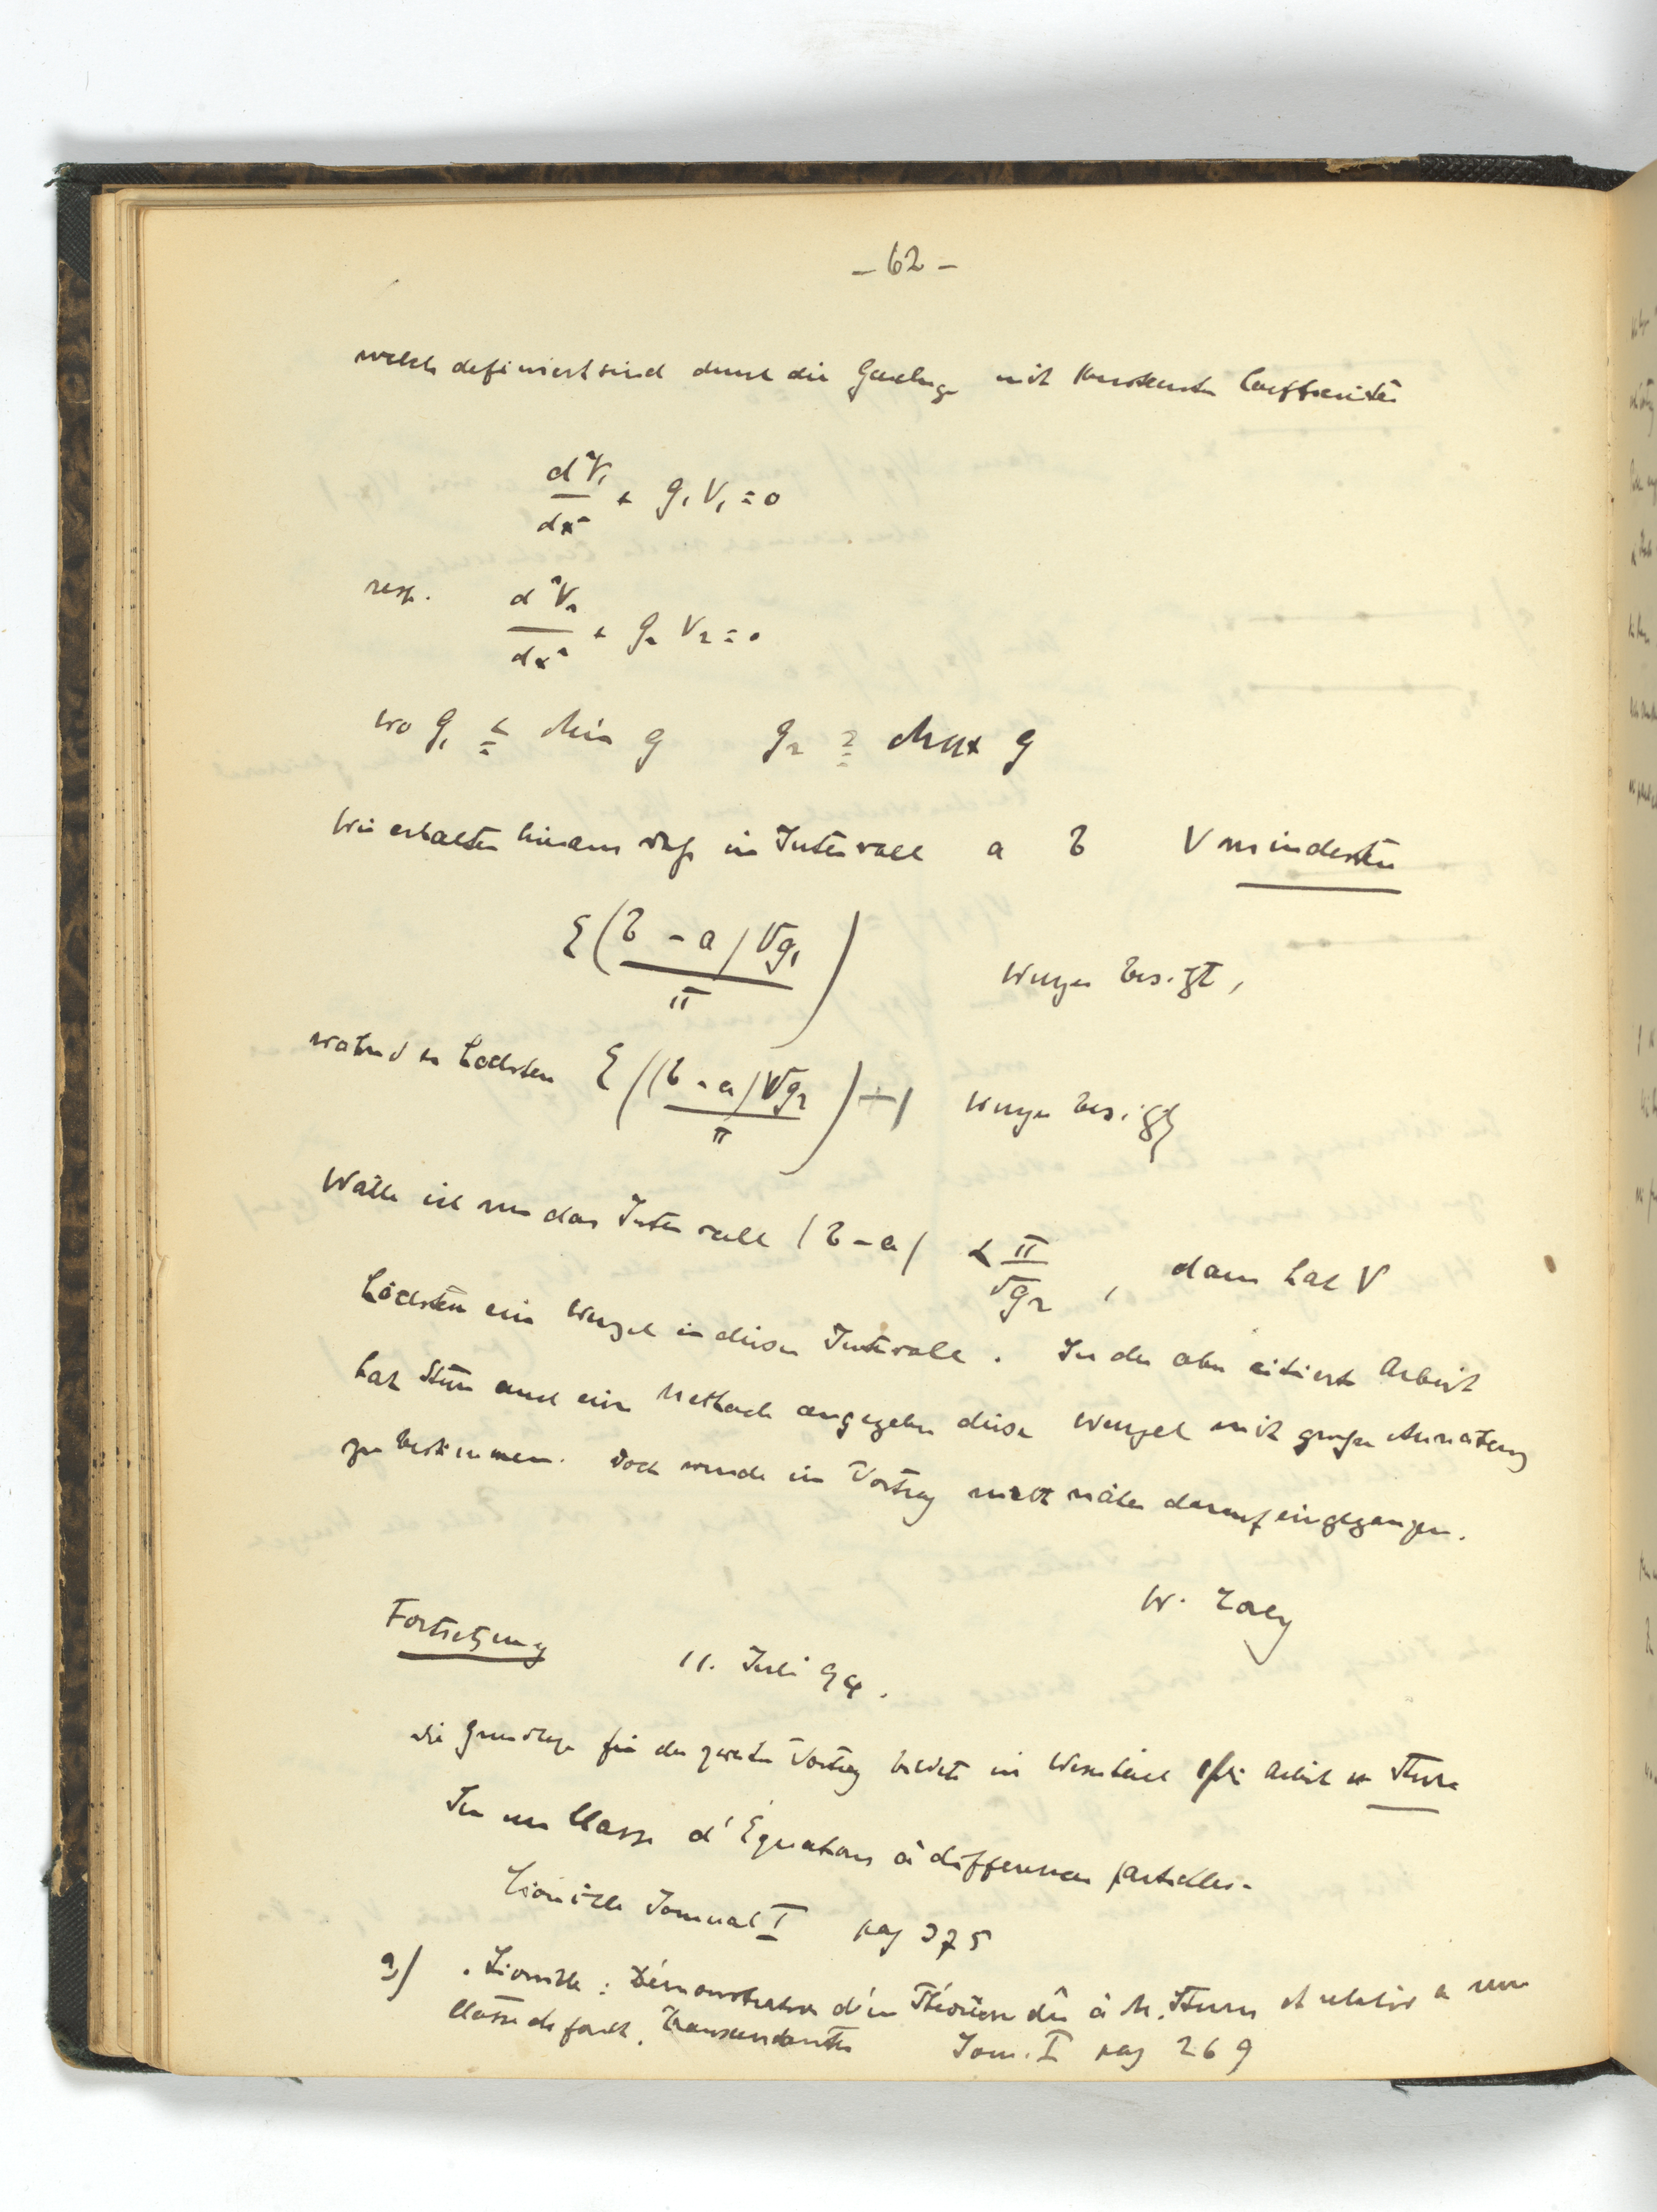 - 62 -
welche definiert sind durch die Gleichung mit konstanten Coefficienten
d²V₁/dx² + g₁ V₁ = 0
resp. d²V₂/dx² + g₂ V₂ = 0
wo g₁ ≦ Min g g₂ ≧ Max g
Wir erhalten hieraus daß im Intervall a b V mindesten
E((b - a) √g₁ / π) Wurzeln besitzt,
während es höchsten E((b - a) √g₂ / π) + 1 Wurzeln besitzt
Wähle ich nun das Intervall (b - a) < π/√g₂, dann hat V
höchsten eine Wurzel in diesem Intervalle. In der oben citierten Arbeit
hat Sturm auch eine Methode angegeben diese Wurzel mit großer Annäherung
zu bestimmen. Doch wurde im Vortrag nicht näher darauf eingegangen.
W.
Fortsetzung 11. Juli 94.
Die Grundlage für den zweiten Vortrag bildete im Wesentlichen die Arbeit v. Sturm
Sur une Classe d'Équations à differences partielles.
Liouville Journal I pag 375
2) Liouville: Démonstration d'un Théorème dû à M. Sturm et relatif a une
Classe de fonct. transcendantes Jour. I pag 269